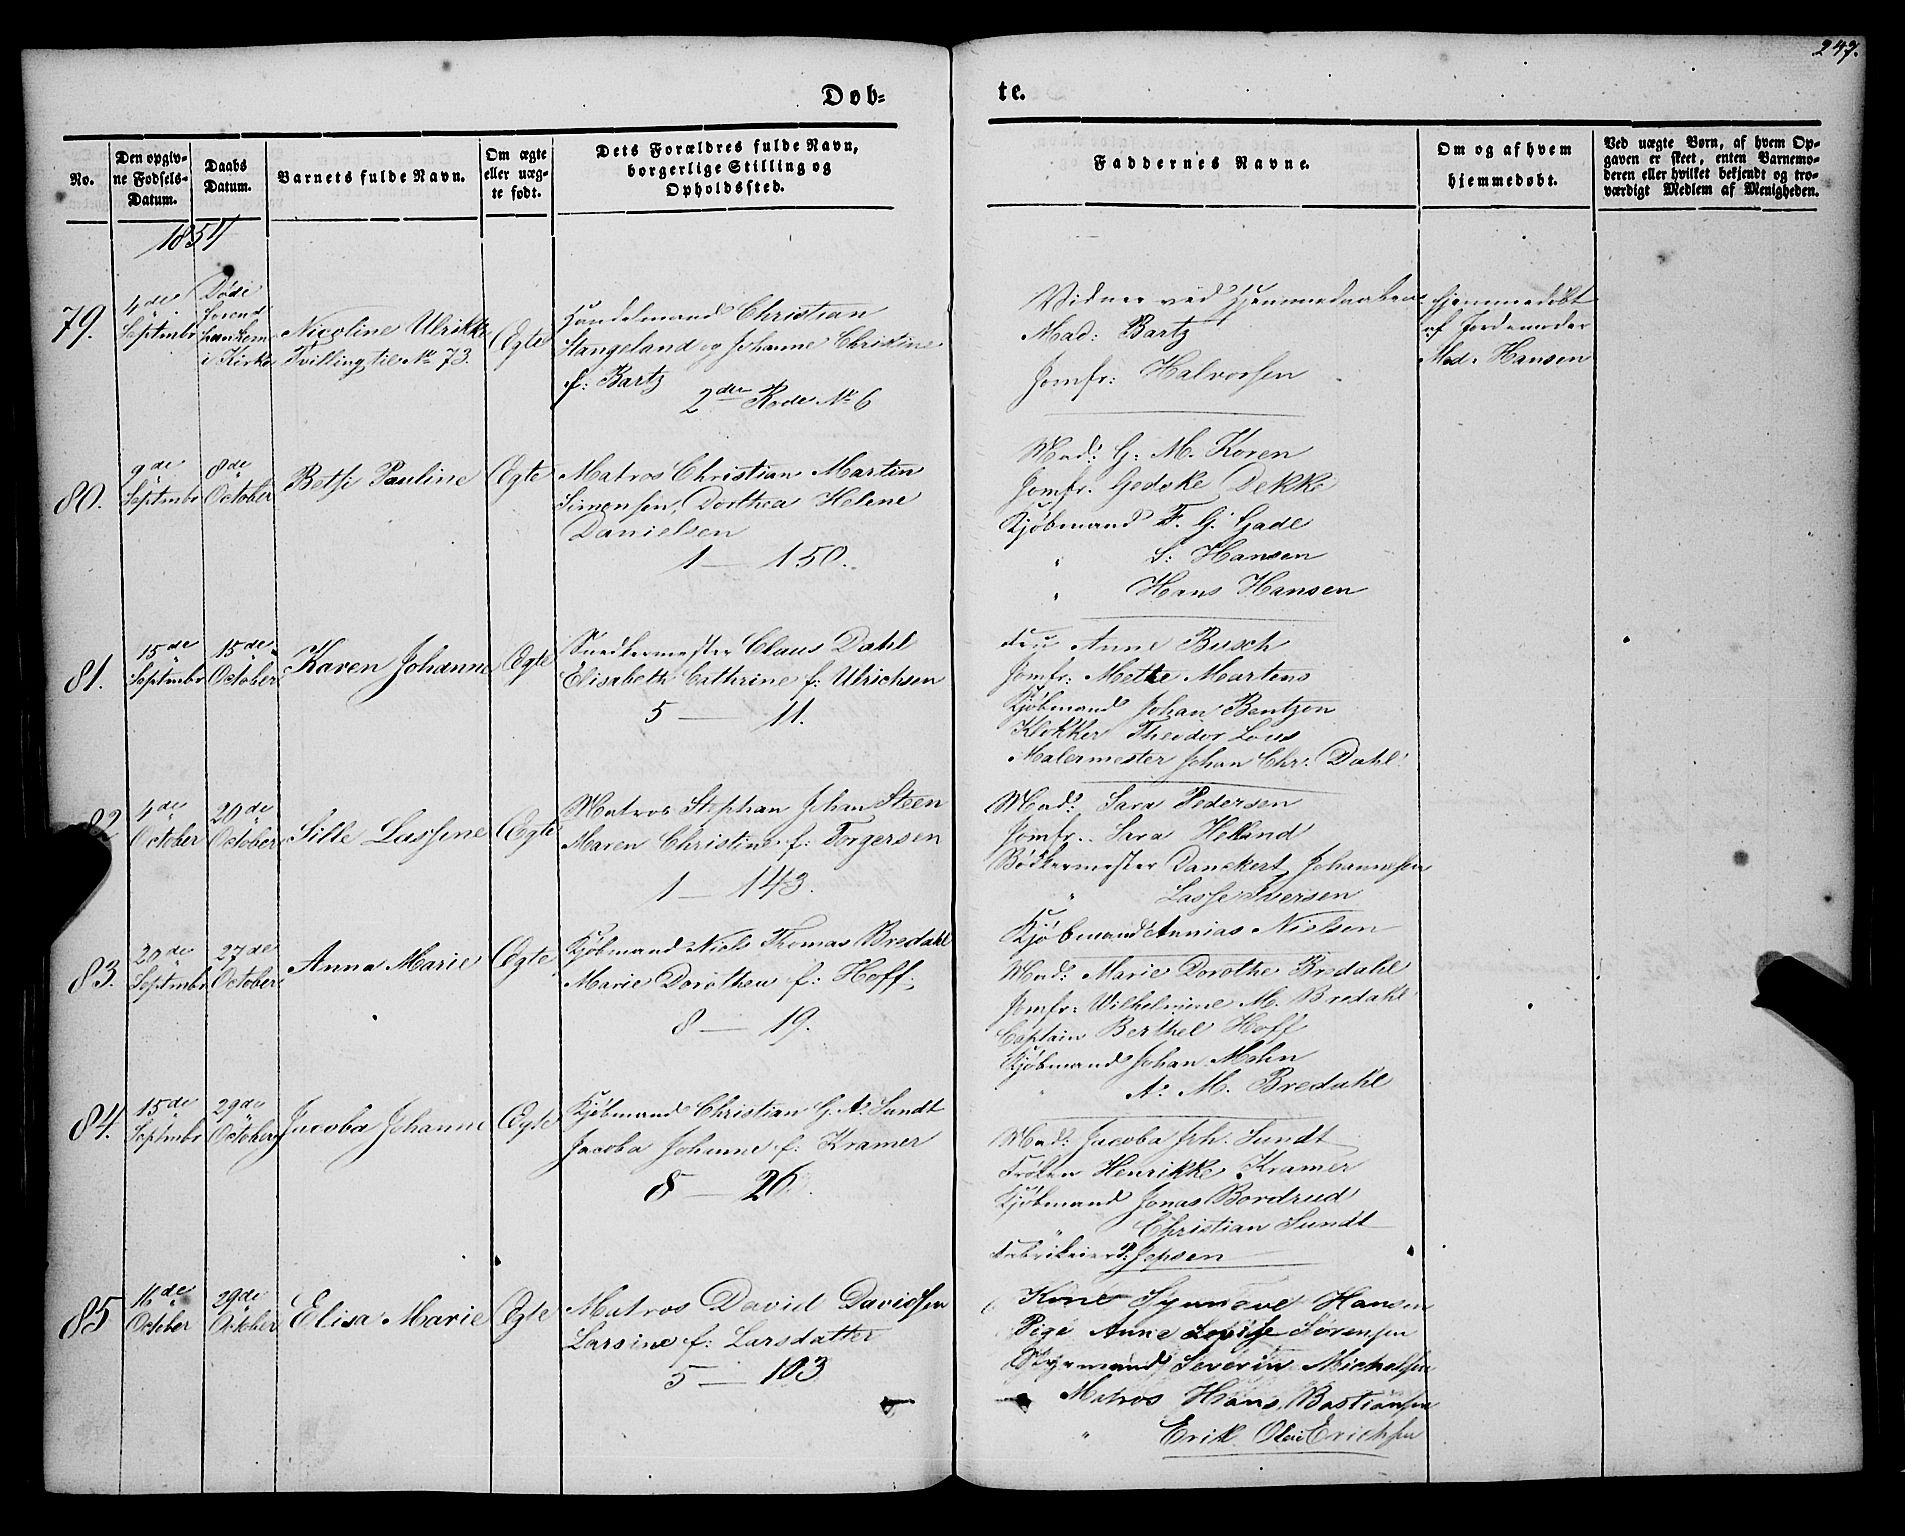 247.
Døb-
te.
No.
Den opgiv-
ne Fødsels-
Datum.
Daabs
Datum.
Barnets fulde Navn.
Om ægte
eller uæg-
te født.
Dets Forældres fulde Navn,
borgerlige Stilling og
Opholdssted.
Faddernes Navne.
Om og af hvem
hjemmedøbt.
Ved uægte Børn, af hvem Op-
gaven er skeet, enten Barnemo-
deren eller hvilket bekjendt og tro-
værdigt Medlem af Menigheden.
1854
79.
4de
Septmbr
Døde
forend
han kom
i Kirke
Nicoline Ulrikke
Tvilling til No 73.
Ægte
Handelsmand Christian
Stangeland og Johanne Christine
f: Bartz
2den Rode No 6
Vidner ved Hjemmedaaben
Mad: Bartz
Jomfr: Halvorsen
hjemmedøbt
af Jordemoder
Mad. Hansen
80.
9de
Septmbr
8de
October
Betsi Pauline
Ægte
Matros Christian Martin
Simensen, Dorthea Helene
Danielsen
1 — 150.
Mad: G: M. Koren
Jomfr. Gedske Dekke
Kjøbmand F. G. Gade
" S: Hansen
" Hans Hansen
81.
15de
Septmbr
15de
October
Karen Johanne
Ægte
Snedkermester Claus Dahl
Elisabeth Cathrine f: Ulrichsen
5 — 11.
Fru Anne Busch
Jomfr: Mette Martens
Kjøbmand Johan Bentzon
Klokker Theodor Lous
Malermester Johan Chr: Dahl.
82
4de
October
20de
October
Sille Lassene
Ægte
Matros Stephan Johan Steen
Maren Christine f: Torgersen
1 — 143.
Mad: Sara Pedersen
Jomfr. Sara Helland
Bødkermester Danckert Johannesen
" Lasse Iversen
Kjøbmand Annias Nielsen
83.
20de
Septmbr
27de
October
Anna Marie
Ægte
Kjøbmand Niels Thomas Bredahl
Marie Dorothea f: Hoff.
8 — 19.
Mad: Marie Dorothe Bredahl
Jomfr: Wilhelmine M. Bredahl
Captain Berthel Hoff
Kjøbmand Johan Mohn
" A. M. Bredahl
84.
15de
Septmbr
29de
October
Jacoba Johanne
Ægte
Kjøbmand Christian G. A. Sundt
Jacoba Johanne f: Kramer
8 — 26.
Mad: Jacoba Joh. Sundt
Frøken Henrikke Kramer
Kjøbmand Jonas Bordrud
" Christian Sundt
P. Jepsen
85
16de
October
29de
October
Elisa Marie
Ægte
Matros David Davidsen
Larsine f: Larsdatter
5 — 103
Kone Synnøve Hansen
Pige Anne Lovise Sørensen
Styrmand Severin Michelsen
Matros Hans Bastiansen
" Erik Olai Erichsen